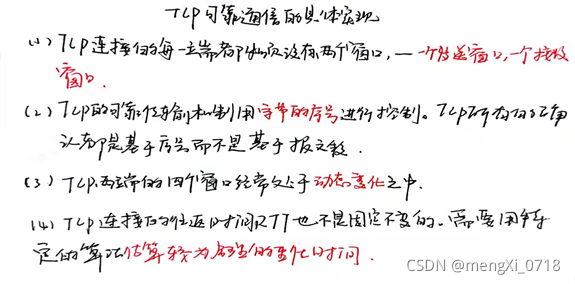 TCP可靠通信的具体实现
(1) TCP连接的每一端都必须设有两个窗口，一一个发送窗口，一个接收
窗口。
(2) TCP的可靠传输机制用字节的序号进行控制。TCP所有的确
认都是基于序号而不是基于报文段.
(3) TCP两端的四个窗口经常处于动态变化之中.
(4) TCP连接的往返时间RTT也不是固定不变的。需要用特
定的算法估算较为合理的往返时间.
CSDN @mengXi_0718